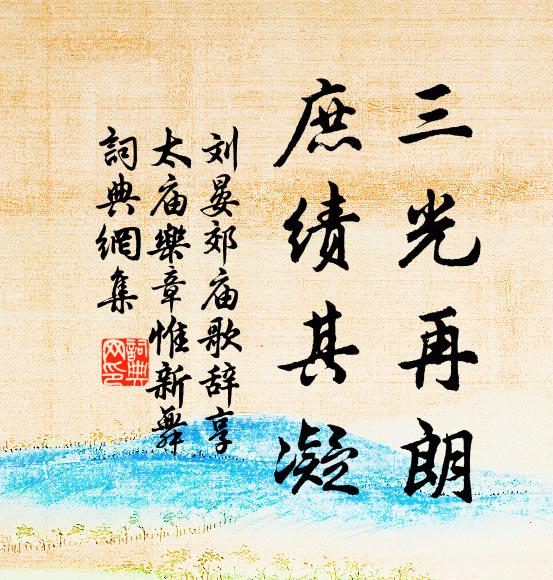 三光再朗
庶绩其凝
刘晏郊庙歌辞享
太庙樂章惟新舞
詞典網集
詞典
网印